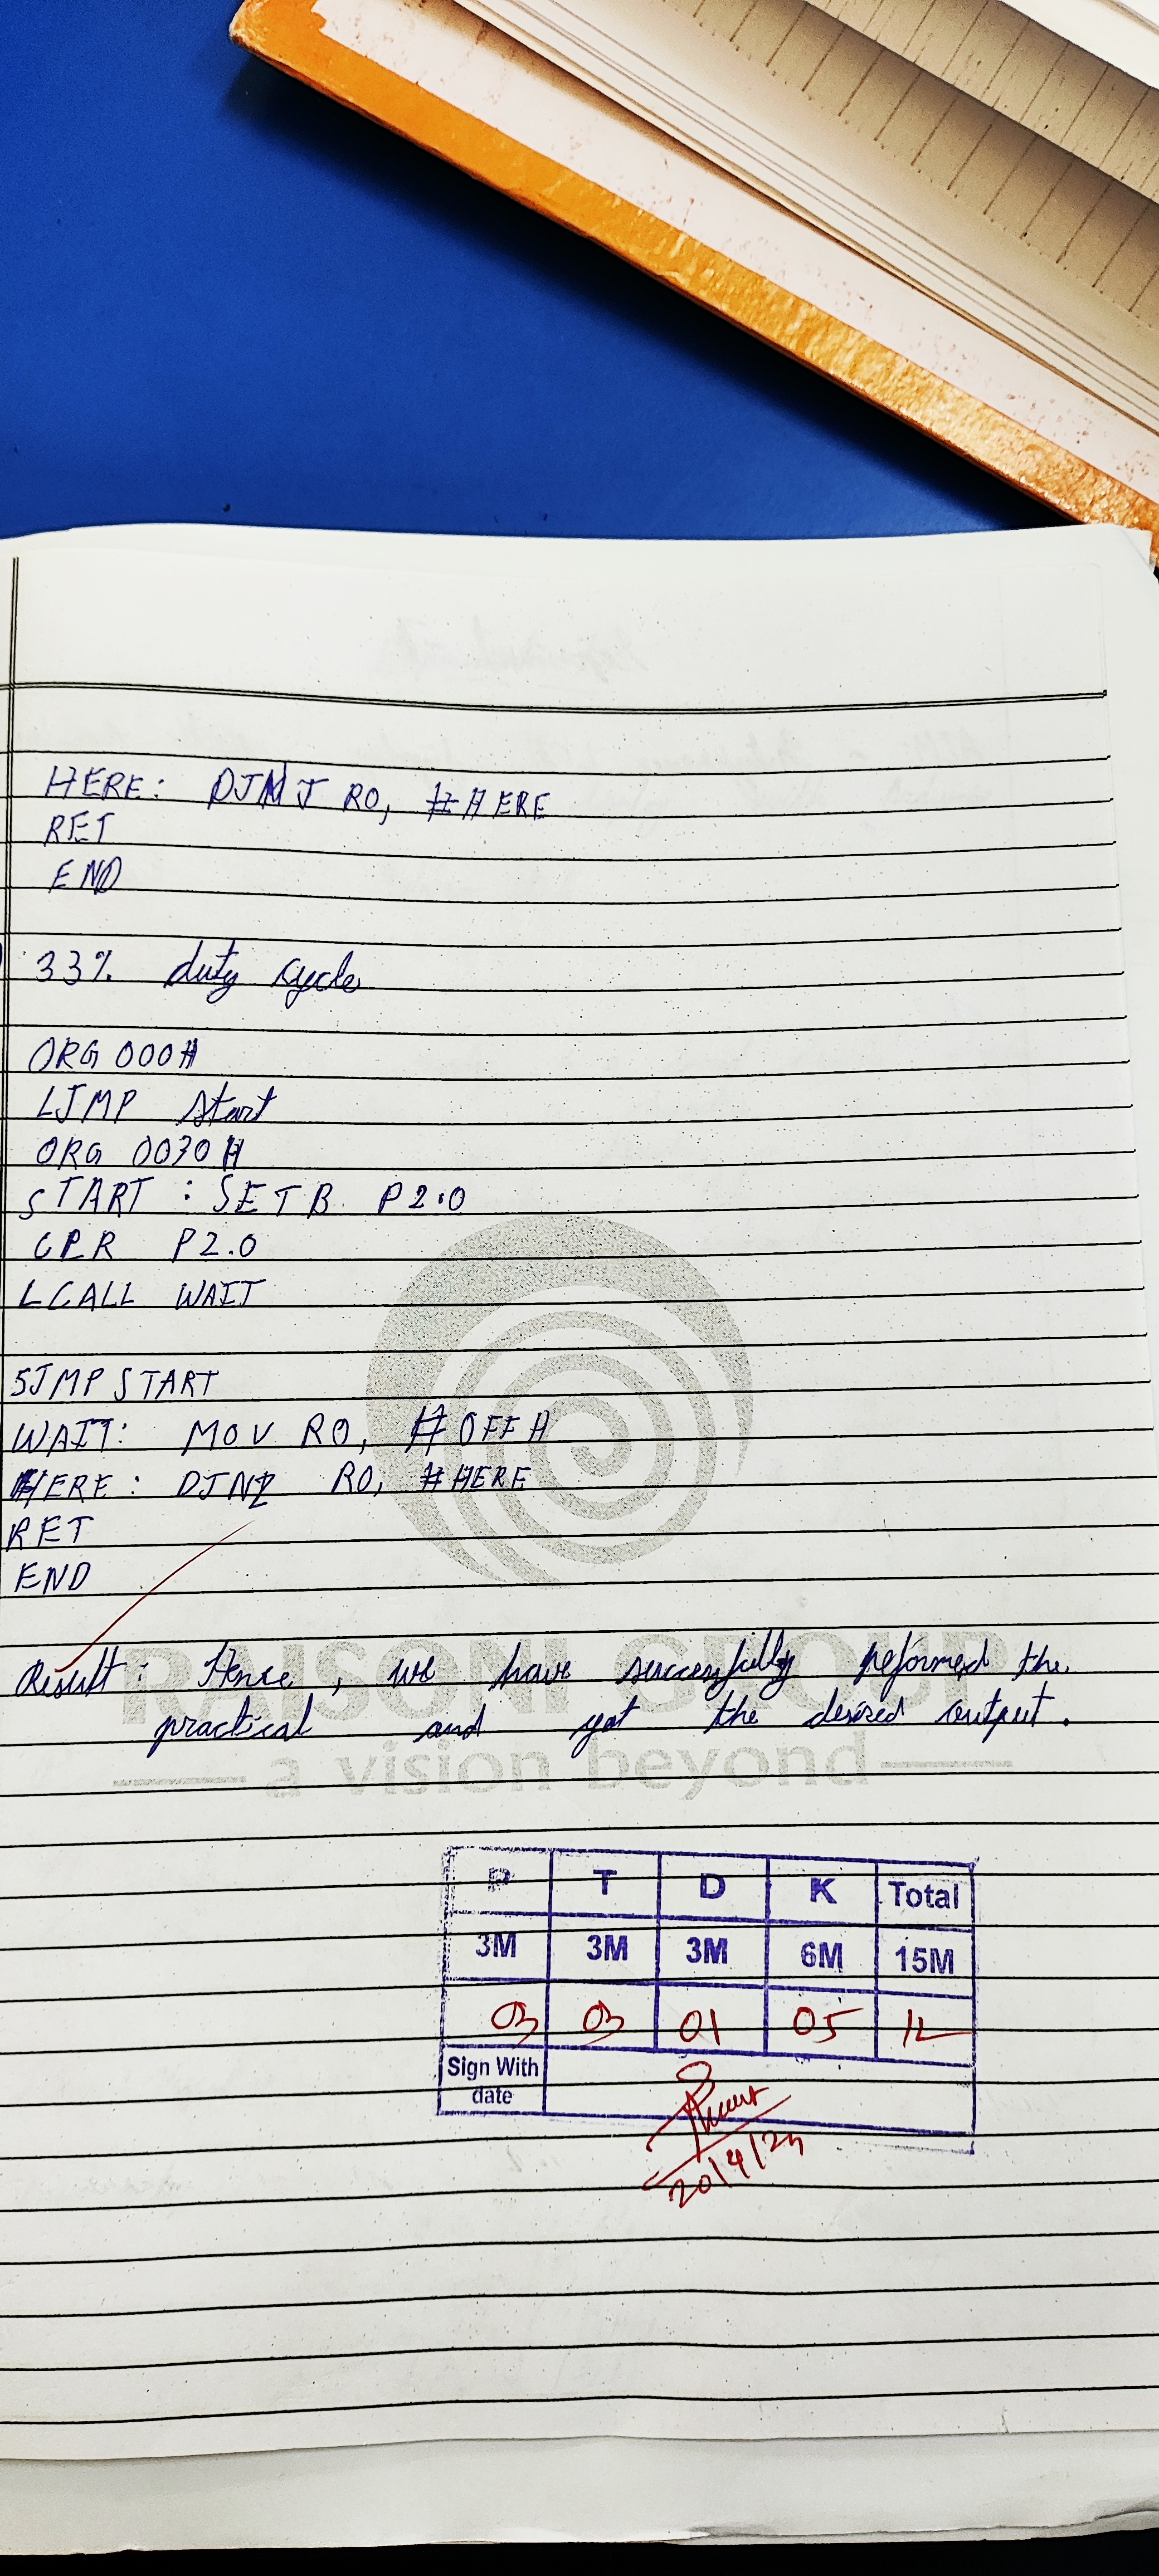 HERE: DJMJ R0, #HERE
RET
END
33% duty cycle
ORG 000H
LJMP Start
ORG 0030H
START : SETB P2.0
CLR P2.0
LCALL WAIT
SJMP START
WAIT: MOV R0, #0FFH
HERE : DJNZ R0, #HERE
RET
END
Result : Hence, we have successfully peformed the
practical and got the desired output.
RAISONI GROUP
a vision beyond
P T D K Total
3M 3M 3M 6M 15M
03 03 01 05 12
Sign With
date
20/4/24